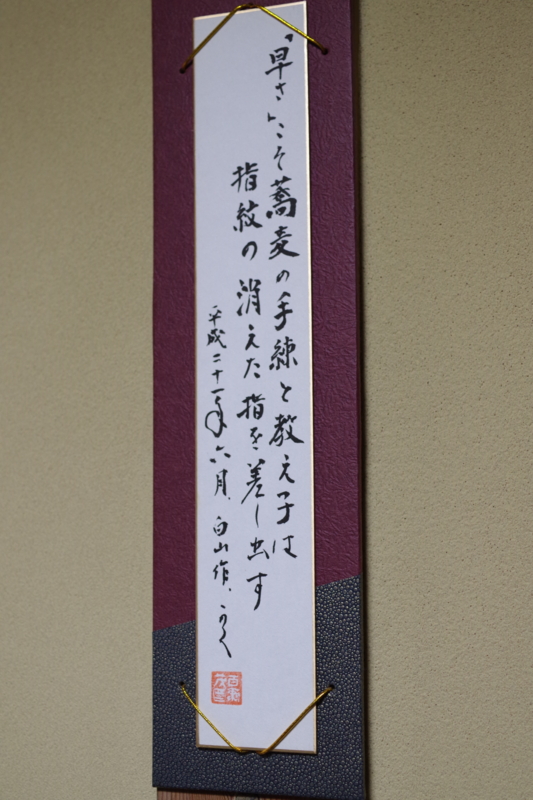 「早さ」こそ蕎麦の手練と教え子は
指紋の消えた指を差し出す
平成二十一年六月、白山作、